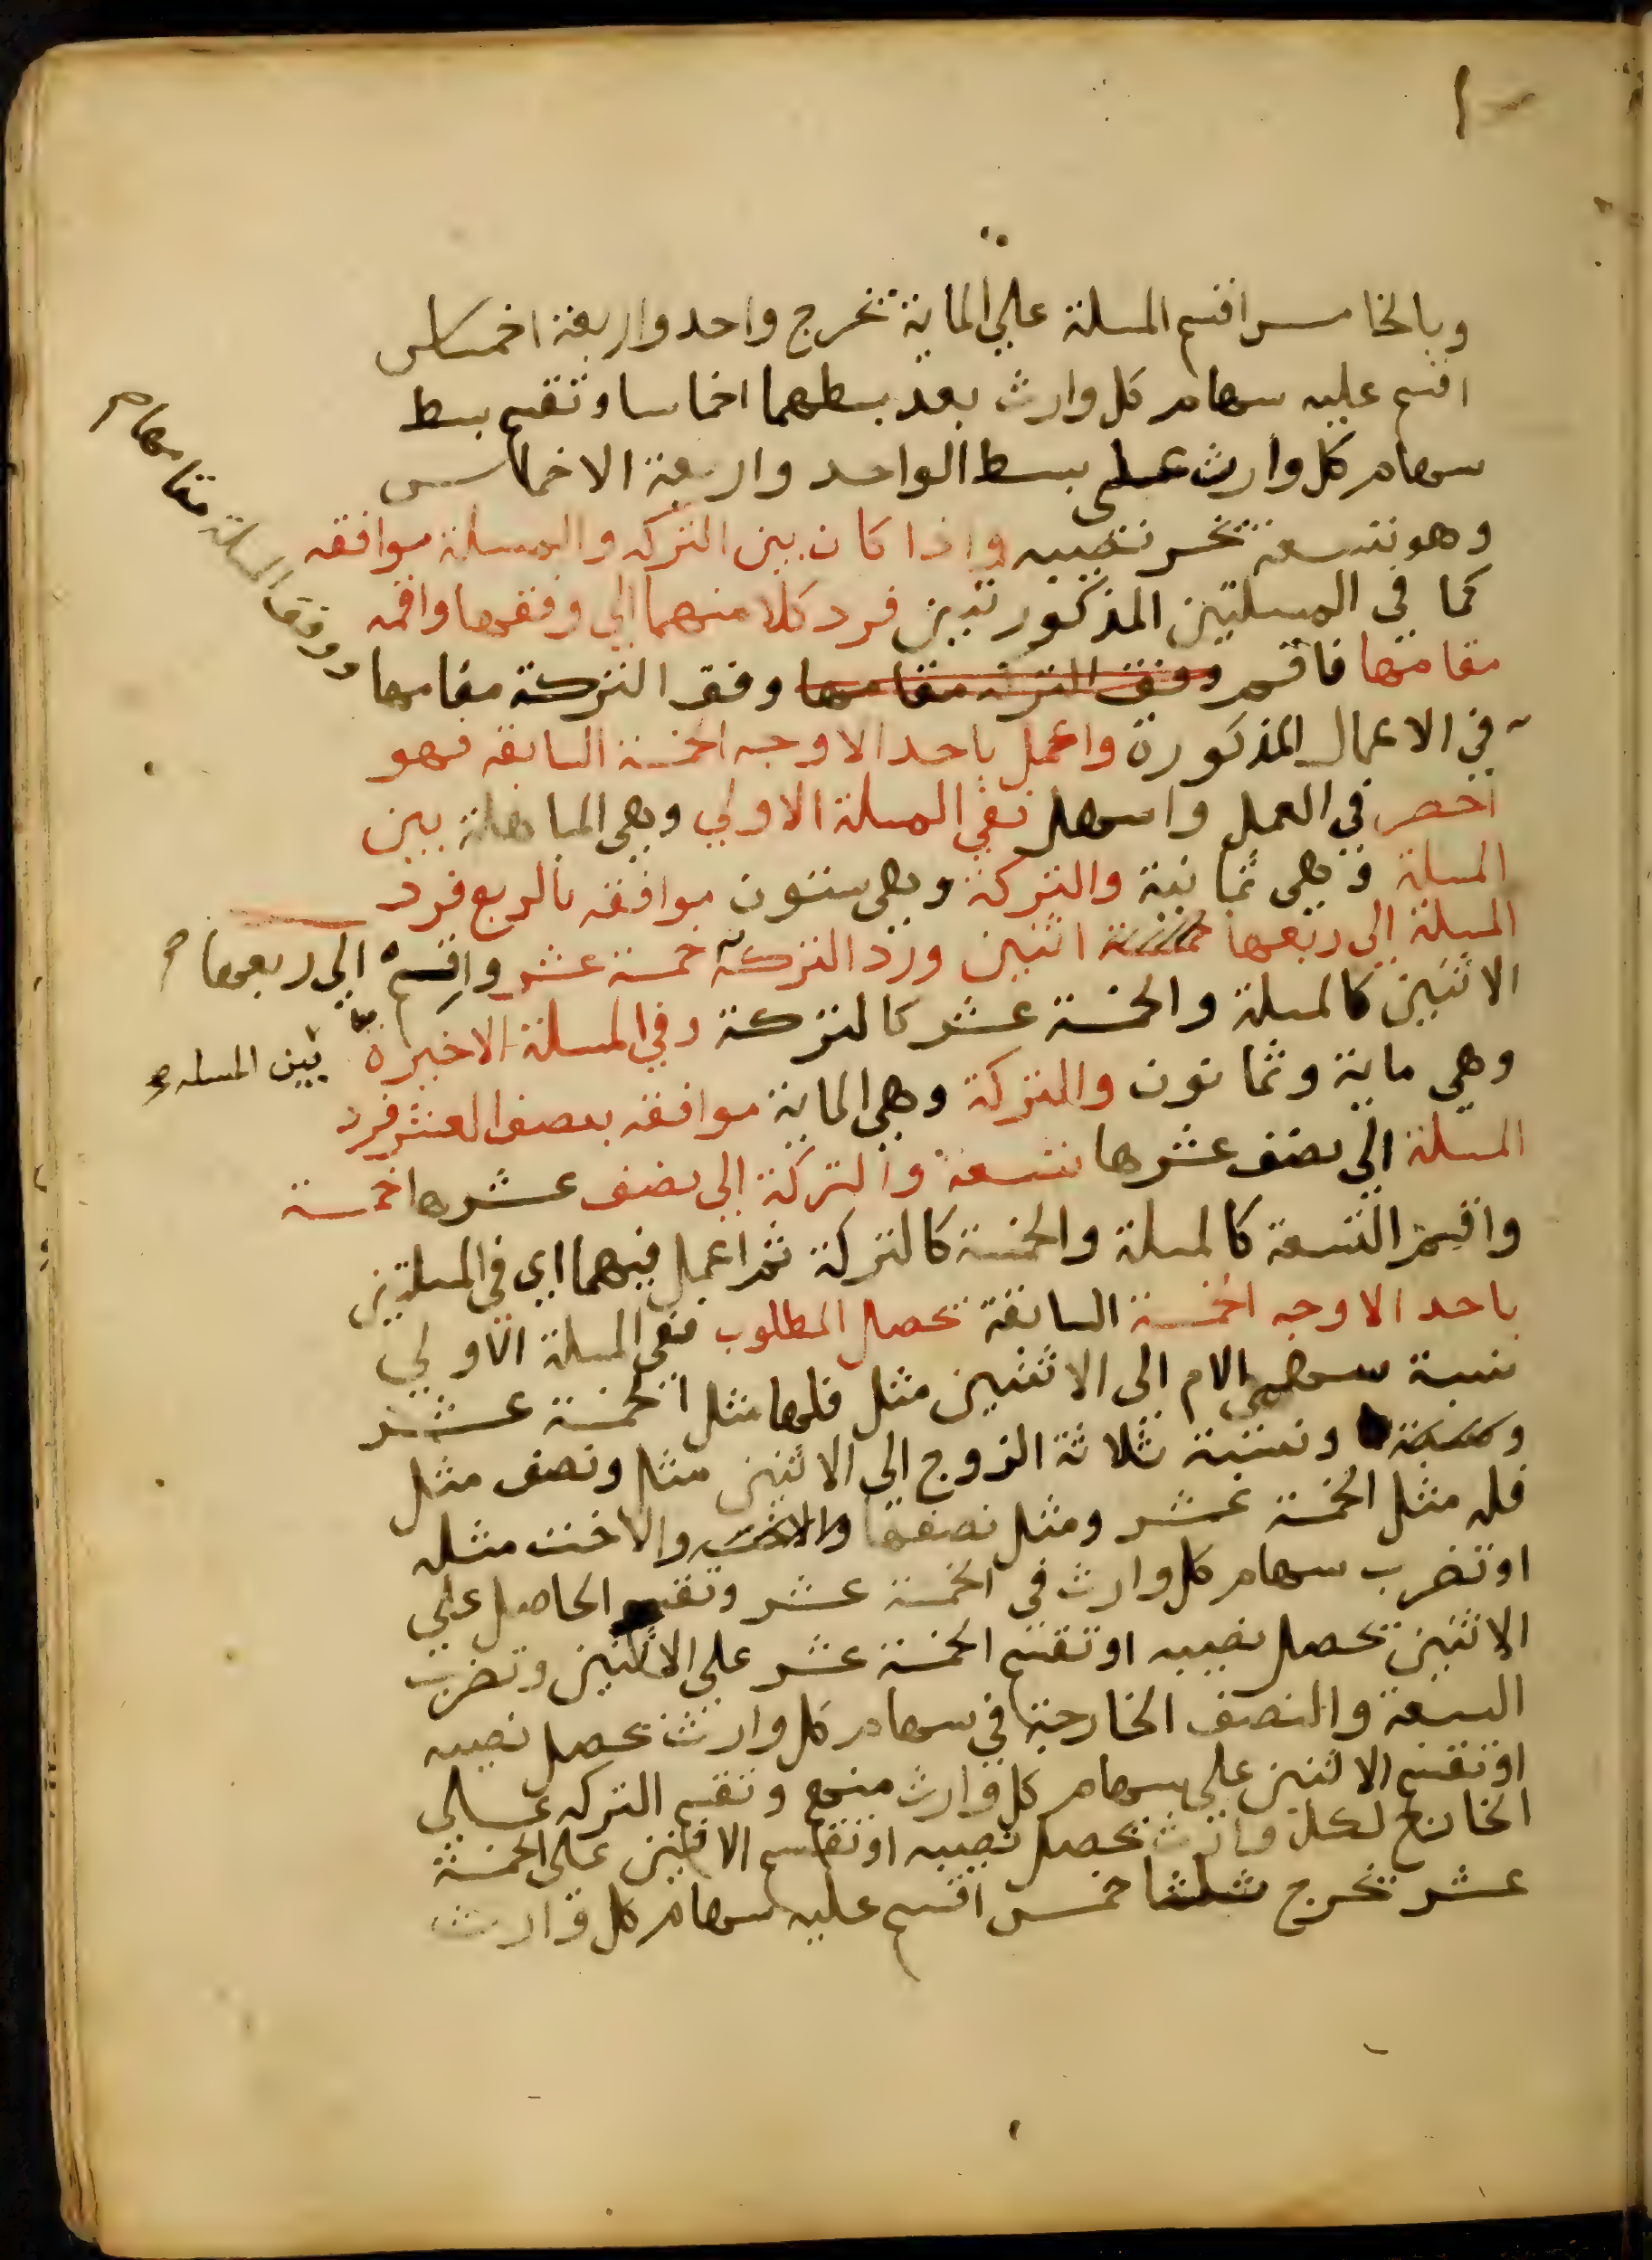 وبالخامس اقسم المسلة علي الماية تخرج واحد واربعة اخماس
اقسم عليه سهام كل وارث بعد بسطهما اخماسا وتقسم بسط
سهام كل وارث على بسط الواحد واربعة الاخماس
وهو تسعة تخر نصيبه واذا كان بين التركه والمسلة موافقه
كما في المسلتين المذكورتين فرد كلا منهما الي وفقها واقمه
مقامها فاقسم وفق التركه مقامها وفق التركة مقامها
ووفق المسلة مقامها
في الاعمال المذكورة واعمل باحد الاوجه الخمسة السابقه فهو
اخصر في العمل واسهل ففي المسلة الاولي وهي المباهلة بين
المسلة وهي ثمانية والتركة وهي ستون موافقه بالربع فرد
المسلة الي ربعها اثنين ورد التركة خمسة عشر واقسم
الي ربعها
الاثنين كالمسلة والخمسة عشر كالتركة وفي المسلة الاخيرة
بين المسله
وهي ماية وثمانون والتركة وهي الماية موافقه بنصف العشر فرد
المسلة الي نصف عشرها تسعة والتركة الي نصف عشرها خمسة
واقسم التسعة كالمسلة والخمسة كالتركة ثم اعمل فيهما اي في المسلتين
باحد الاوجه الخمسة السابقة تحصل المطلوب ففي المسلة الاولي
نسبة سهمي الام الي الاثنين مثل فلها مثل الخمسة عشر
ونسبة ثلاثة الزوج الي الاثنين مثل ونصف مثل
فله مثل الخمسة عشر ومثل نصفها والاخت مثله
او تضرب سهام كل وارث في الخمسة عشر وتقسم الحاصل علي
الاثنين تحصل نصيبه او تقسم الخمسة عشر علي الاثنين وتضرب
السبعة والنصف الخارجة في سهام كل وارث تحصل نصيبه
او تقسم الاثنين على سهام كل وارث منهم وتقسم التركه علي
الخارج لكل وارث تحصل نصيبه او تقسم الاثنين علي الخمسة
عشر تخرج ثلثا خمس اقسم عليه سهام كل وارث